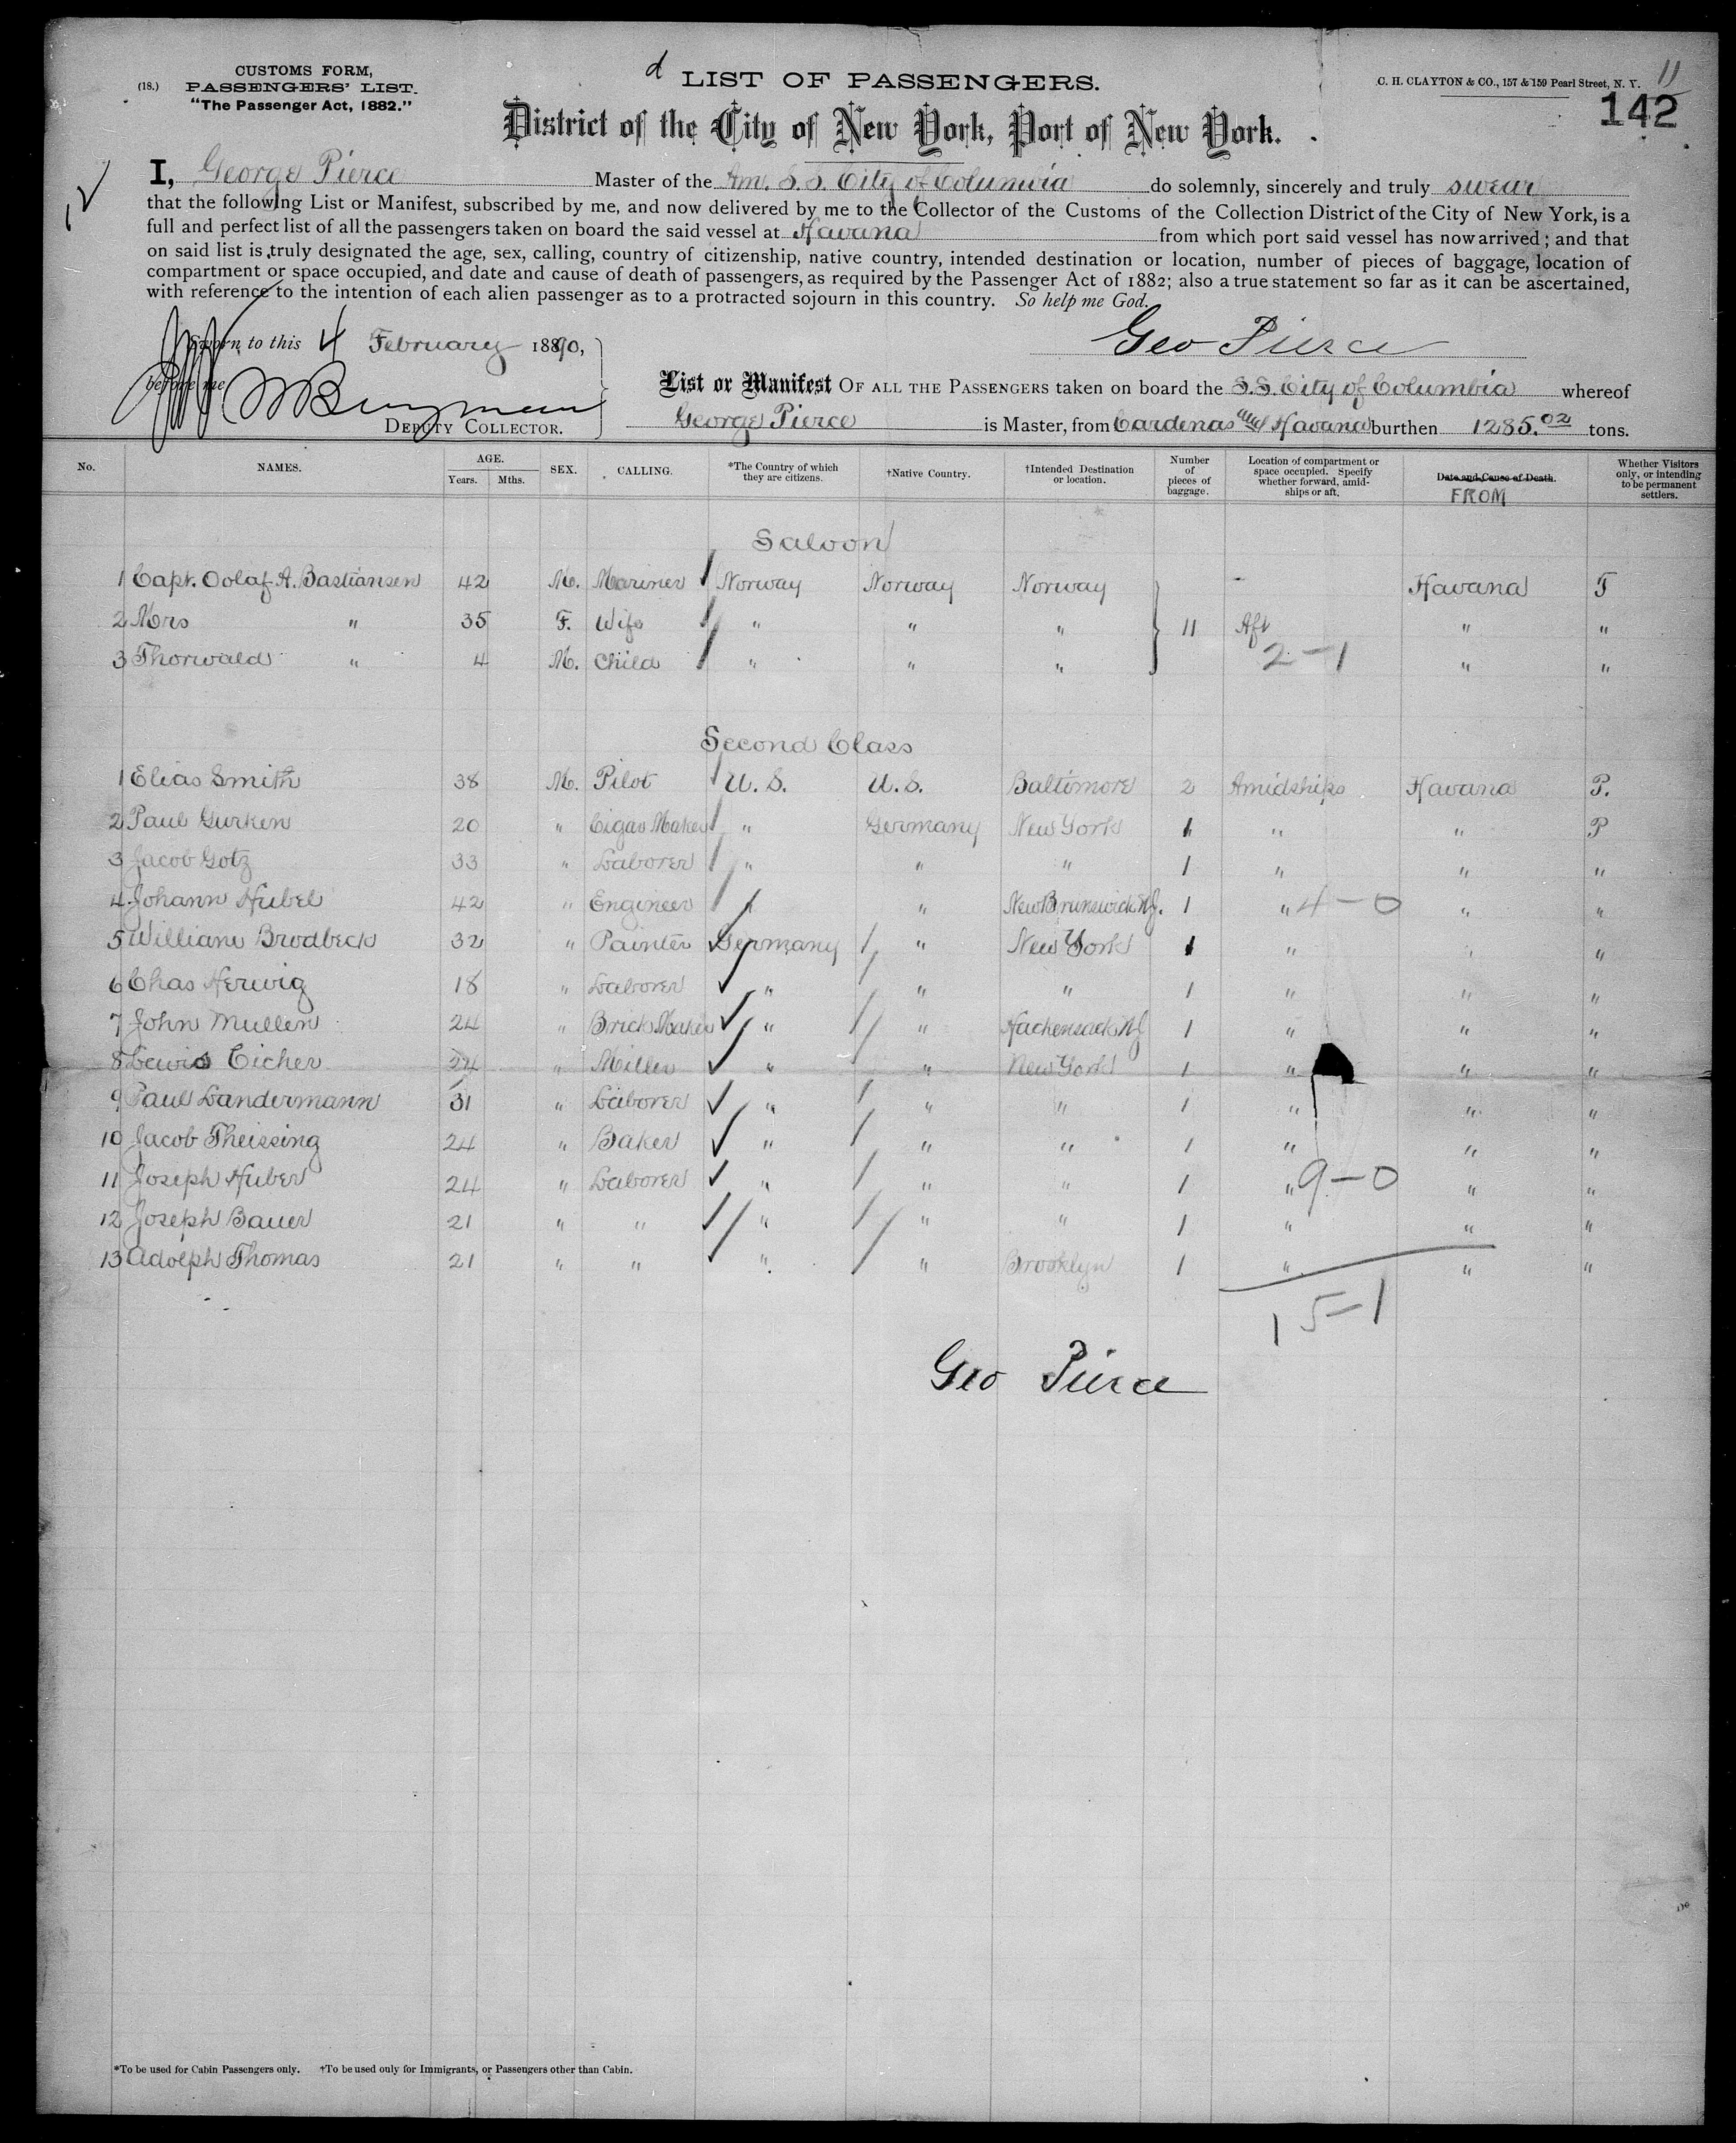 CUSTOMS FORM,
(18.) PASSENGERS' LIST.
"The Passenger Act, 1882."
d LIST OF PASSENGERS.
C. H. CLAYTON & CO., 157 & 159 Pearl Street, N. Y. 11
142
District of the City of New York, Port of New York.
I, George Pierce Master of the Am. S.S. City of Columbia do solemnly, sincerely and truly swear
that the following List or Manifest, subscribed by me, and now delivered by me to the Collector of the Customs of the Collection District of the City of New York, is a
full and perfect list of all the passengers taken on board the said vessel at Havana from which port said vessel has now arrived; and that
on said list is truly designated the age, sex, calling, country of citizenship, native country, intended destination or location, number of pieces of baggage, location of
compartment or space occupied, and date and cause of death of passengers, as required by the Passenger Act of 1882; also a true statement so far as it can be ascertained,
with reference to the intention of each alien passenger as to a protracted sojourn in this country. So help me God.
Sworn to this 4 February 1890,
Geo Pierce
before me
DEPUTY COLLECTOR.
List or Manifest OF ALL THE PASSENGERS taken on board the S.S. City of Columbia whereof
George Pierce is Master, from Cardenas and Havana burthen 1285.02 tons.
No. NAMES. AGE. Years. Mths. SEX. CALLING. *The Country of which they are citizens. †Native Country. †Intended Destination or location. Number of pieces of baggage. Location of compartment or space occupied. Specify whether forward, amidships or aft. Date and Cause of Death. FROM Whether Visitors only, or intending to be permanent settlers.
Saloon
1 Capt. Oolaf A. Bastiansen 42 M. Mariner Norway Norway Norway Havana T
2 Mrs " 35 F. Wife " " " 11 Aft " "
3 Thorwald " 4 M. Child " " " 2-1 " "
Second Class
1 Elias Smith 38 M. Pilot U.S. U.S. Baltimore 2 Amidships Havana P.
2 Paul Gurken 20 " Cigar Maker " Germany New York 1 " " P
3 Jacob Gotz 33 " Laborer " " " 1 " " "
4 Johann Hubel 42 " Engineer " " New Brunswick N.J. 1 " 4-0 " "
5 William Brodbeck 32 " Painter Germany " New York 1 " " "
6 Chas Herwig 18 " Laborer " " " 1 " " "
7 John Mullen 24 " Brick Maker " " Hackensack NJ 1 " " "
8 Lewis Eicher 24 " Miller " " New York 1 " " "
9 Paul Landermann 31 " Laborer " " " 1 " " "
10 Jacob Theissing 24 " Baker " " " 1 " " "
11 Joseph Huber 24 " Laborer " " " 1 " 9-0 " "
12 Joseph Bauer 21 " " " " " 1 " " "
13 Adolph Thomas 21 " " " " Brooklyn 1 " " "
15-1
Geo Pierce
*To be used for Cabin Passengers only. †To be used only for Immigrants, or Passengers other than Cabin.